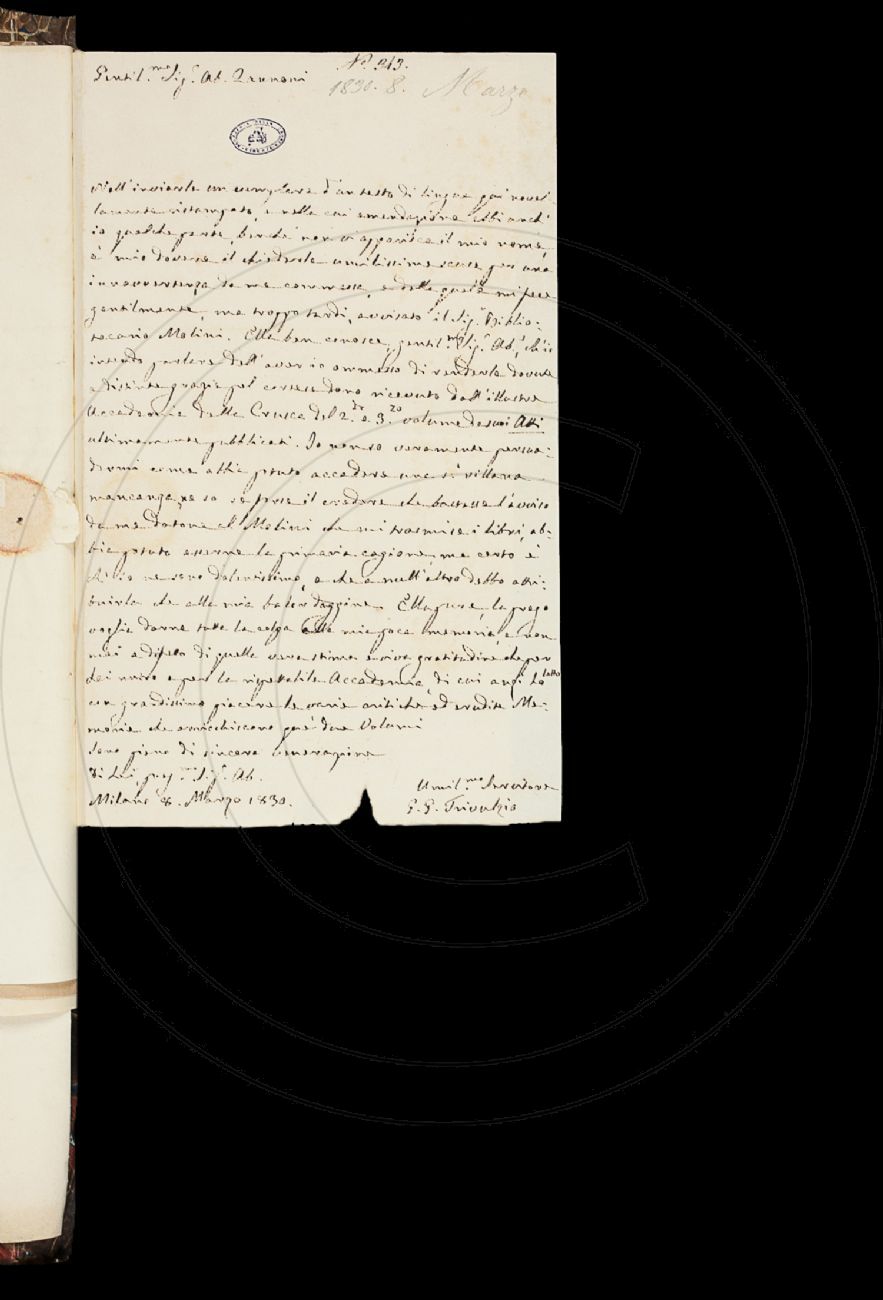 Gentil.mo Sig.r Ab. Zannoni
N.o 313.
1830. 8. Marzo
Nell'inviarle un esemplare d'un testo di lingua qui novel-
lamente ristampato, e nella cui emendazione ebbi anch'
io qualche parte, benchè non vi apparisca il mio nome,
è mio dovere il chiederle umilissime scuse per una
inavvertenza da me commessa, e della quale mi fece
gentilmente, ma troppo tardi, avvisato il Sig.r Biblio-
tecario Molini. Ella ben conosce, gentil.mo Sig.r Ab.e, ch'io
intendo parlare dell'aver io ommesso di renderle dovute
e distinte grazie pel cortese dono ricevuto dall'illustre
Accademia della Crusca del 2.do e 3.zo volume de suoi Atti
ultimamente pubblicati. Io non so veramente persua-
dermi come abbia potuto accadere una sì villana
mancanza, ne so se forse il credere che bastasse l'avviso
da me datone al Molini che mi trasmise i libri, ab-
bia potuto esserne la primaria cagione, ma certo è
ch'io ne sono dolentissimo, e che a null'altro debbo attri-
buirla che alla mia balordaggine. Ella pure, la prego
voglia darne tutta la colpa alla mia poca memoria, e non
mai a difetto di quella vera stima e viva gratitudine che per
Lei nutro e per la rispettabile Accademia, di cui anzi ho letto
con grandissimo piacere le varie critiche ed erudite Me-
morie che arricchiscono que' due Volumi
Sono pieno di sincera venerazione
Di Lei, preg.mo Sig.r Ab.
Milano 8. Marzo 1830.
Umil.mo Servitore
G. G. Trivulzio